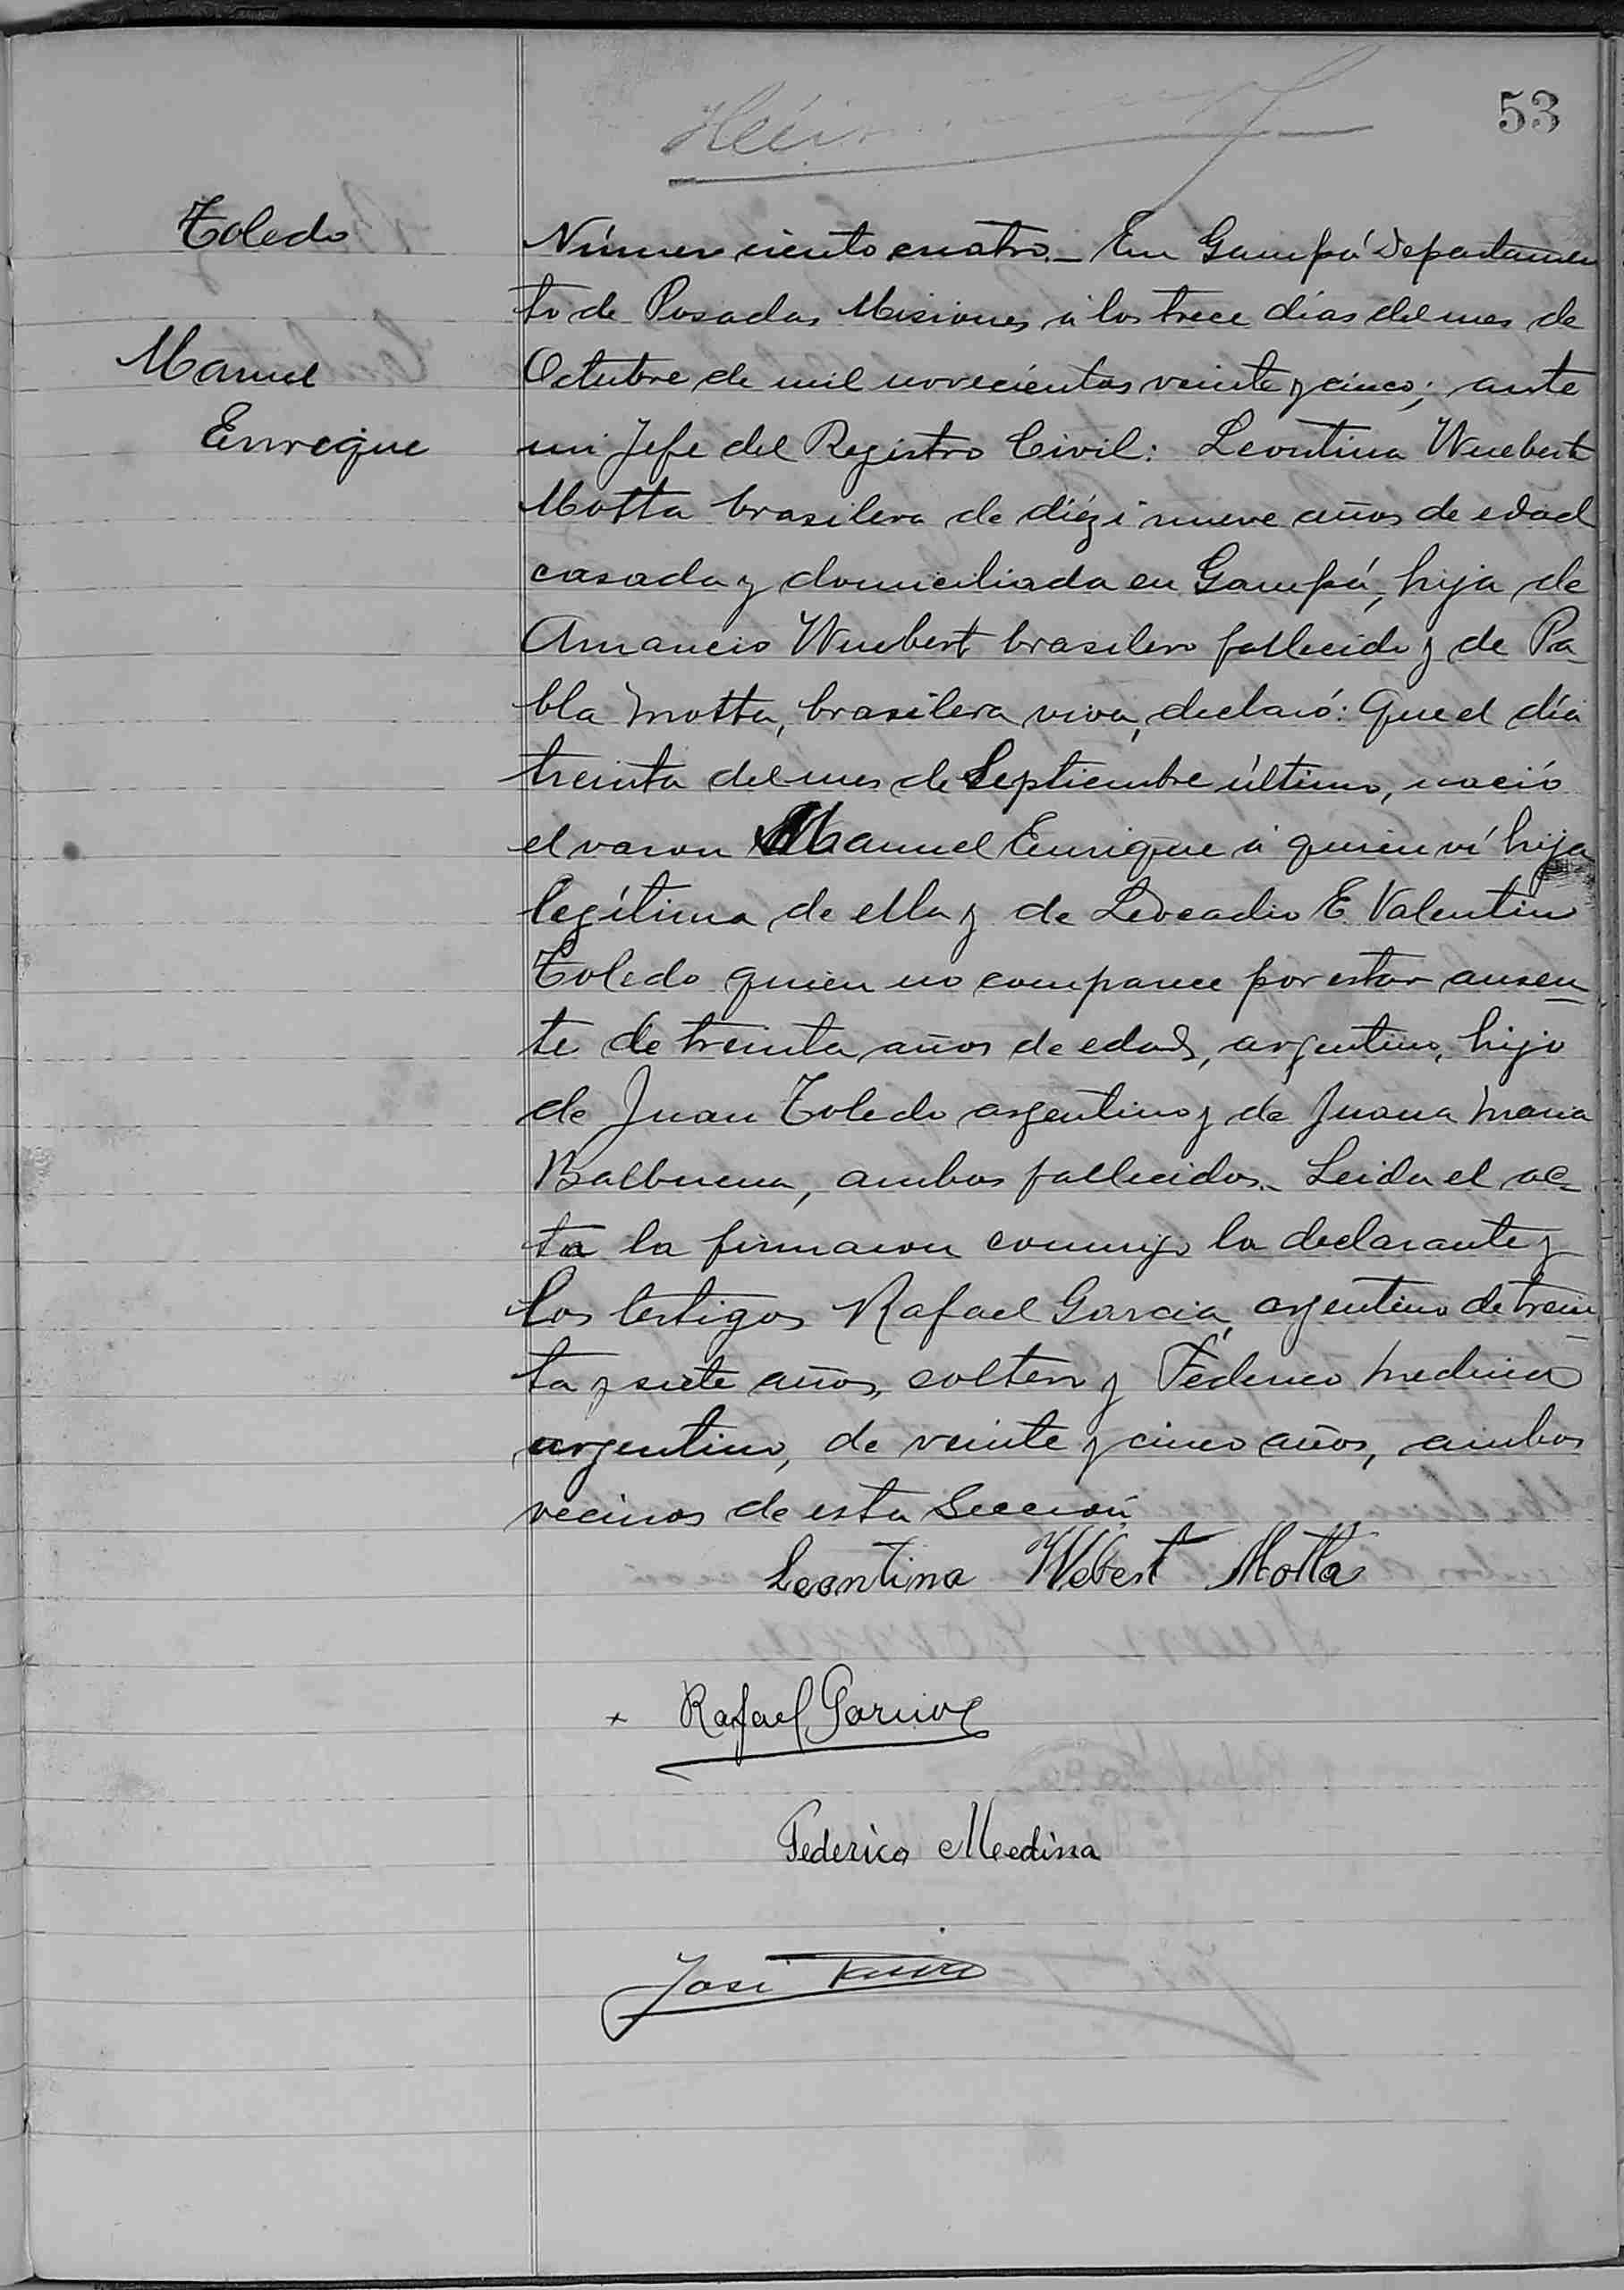 53
Toledo
Manuel
Enrique
Número ciento cuatro._ En Garupá Departamen
to de Posadas Misiones á los trece días del mes de
Octubre de mil novecientos veinte y cinco; ante
mi Jefe del Registro Civil: Leontina Wuebert
Motta brasilera de diéz i nueve años de edad
casada y domiciliada en Garupá, hija de
Amancio Wuebert brasilero fallecido y de Pa_
bla Motta, brasilera viva, declaró: Que el día
treinta del mes de Septiembre último, nació
el varon Manuel Enrique á quien ví hijo
legítimo de ella y de Leocadio E. Valentin
Toledo quien no comparece por estar ausen_
te de treinta años de edad, argentino, hijo
de Juan Toledo argentino y de Juana Maria
Balbuena, ambos fallecidos._ Leida el ac_
ta la firmaron conmigo la declarante y
los testigos Rafael Garcia, argentino de trein_
ta y siete años, soltero y Federico Medina
argentino, de veinte y cinco años, ambos
vecinos de esta Sección
Leontina Webert Motta
x Rafael Garcia
Federico Medina
José